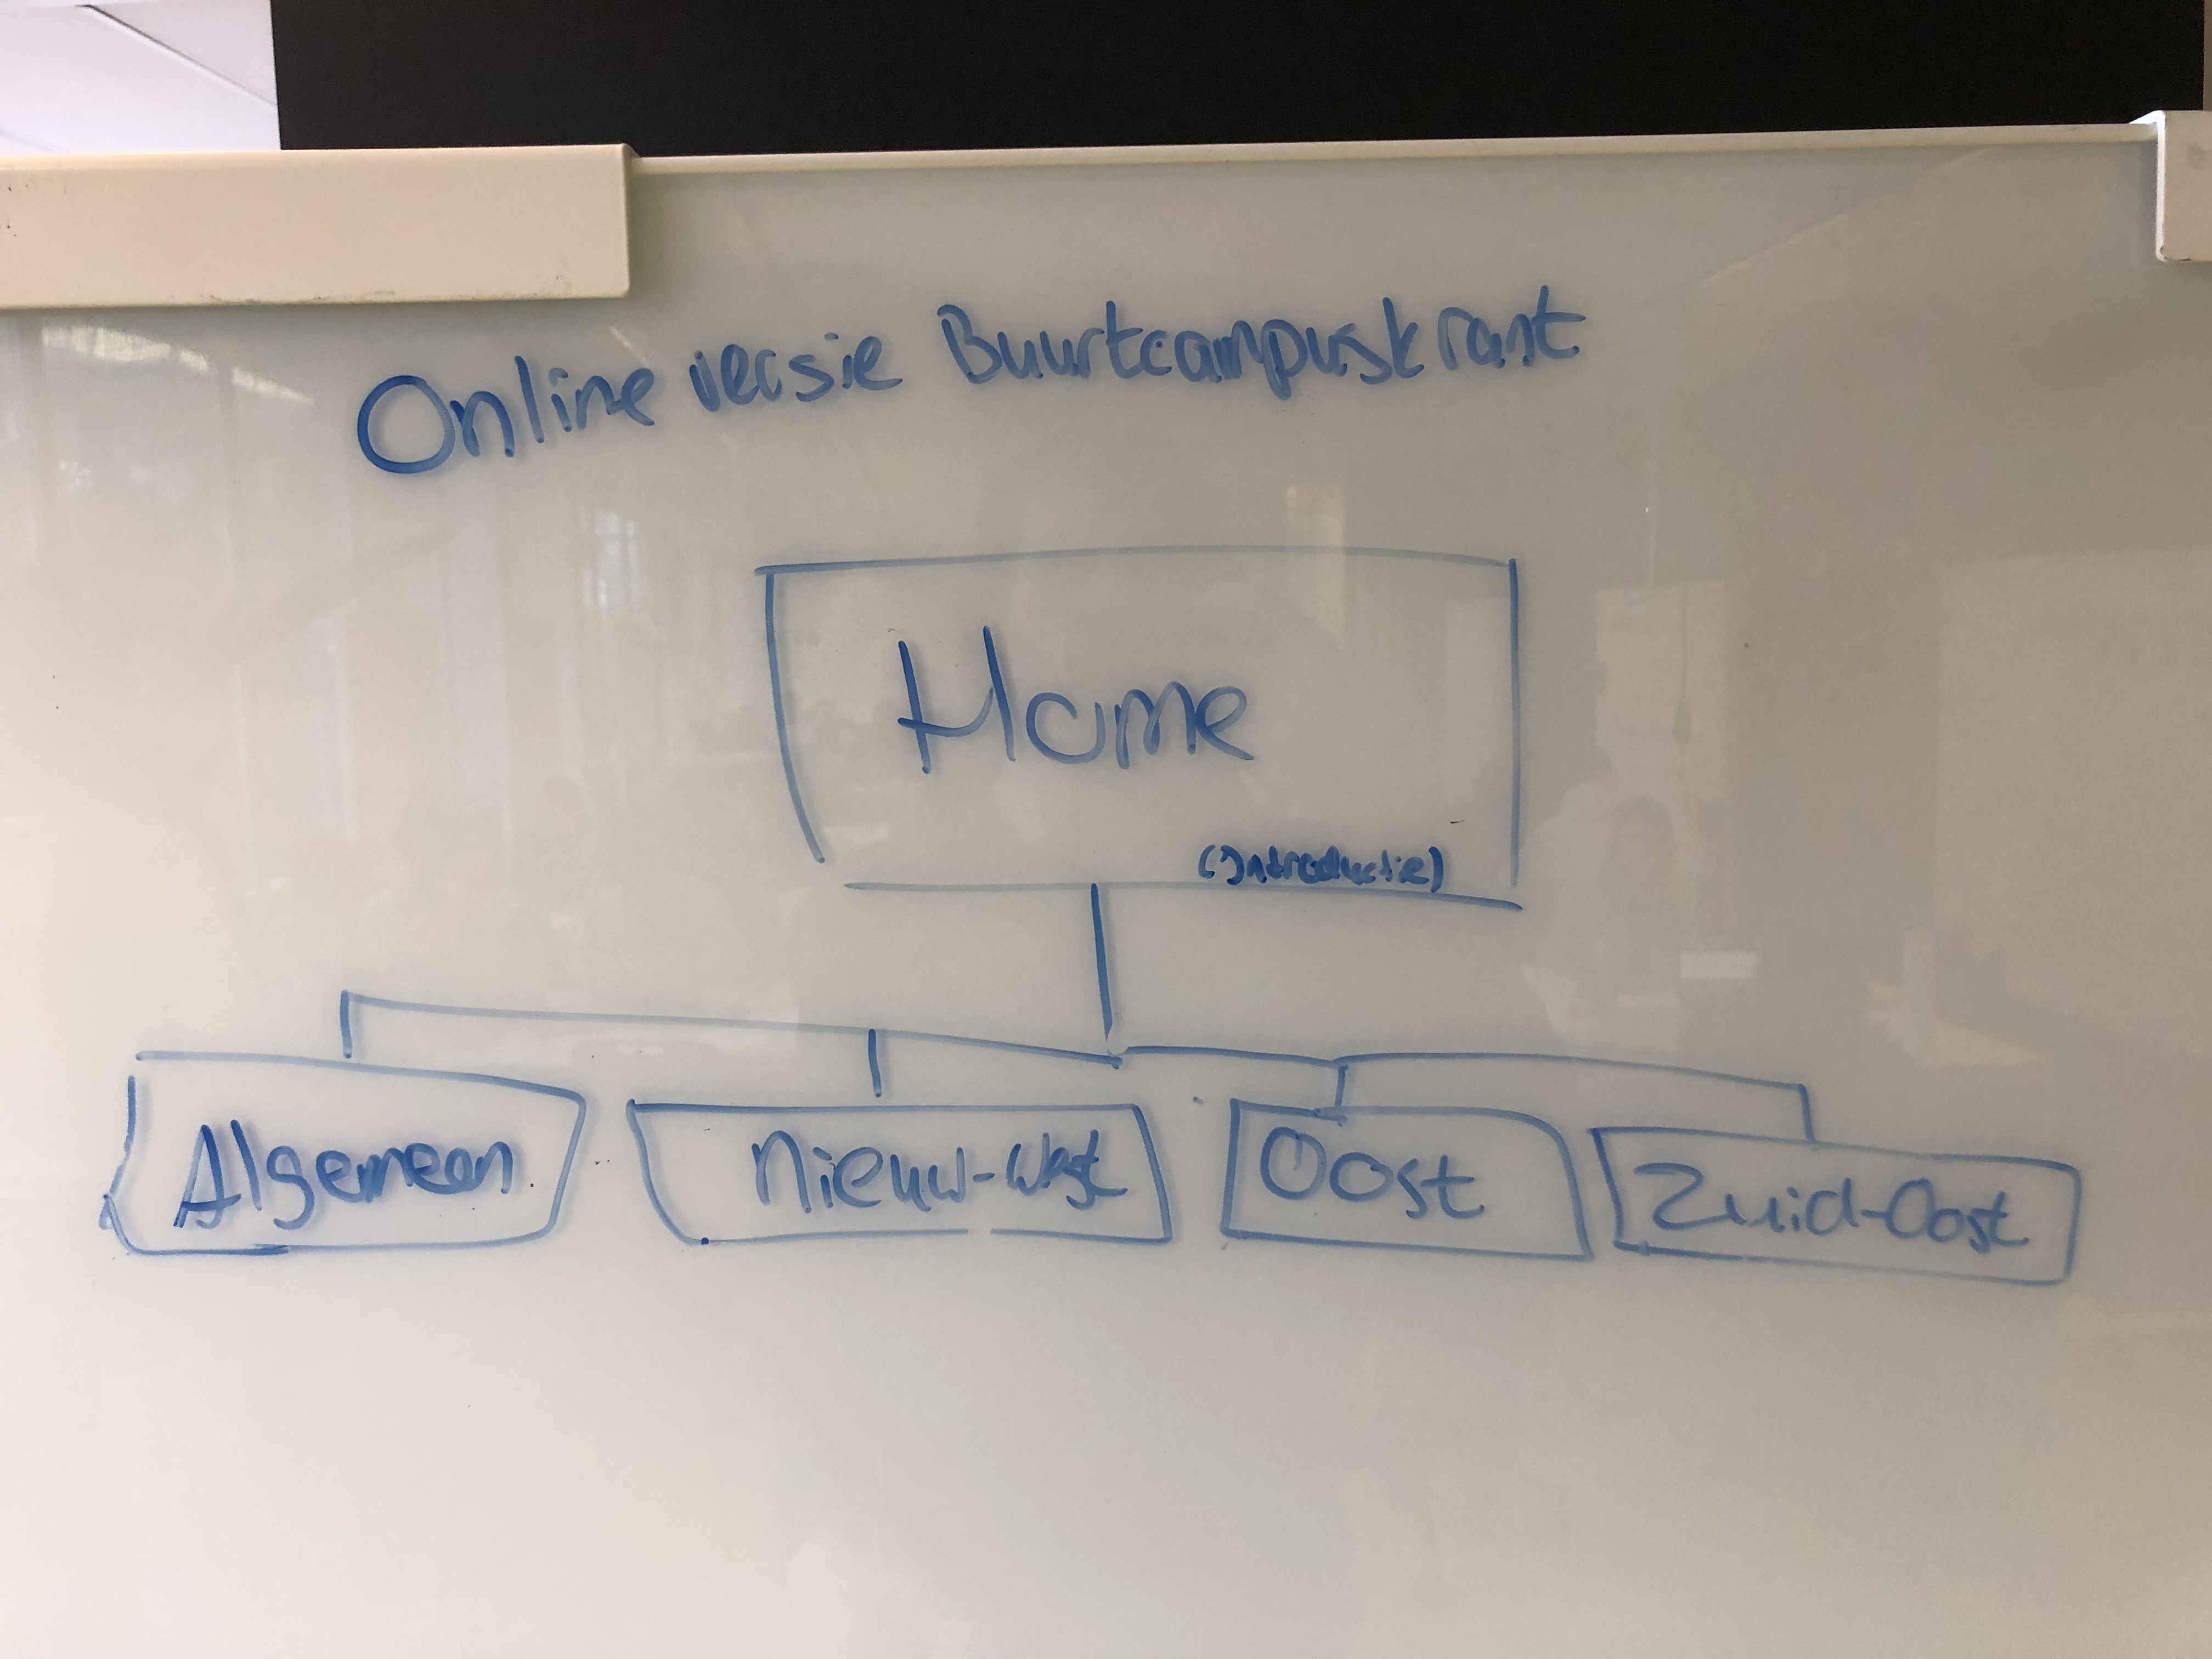 Online versie Buurtcampuskrant
Home
(Introductie)
Algemeen
Nieuw-West
Oost
Zuid-Oost